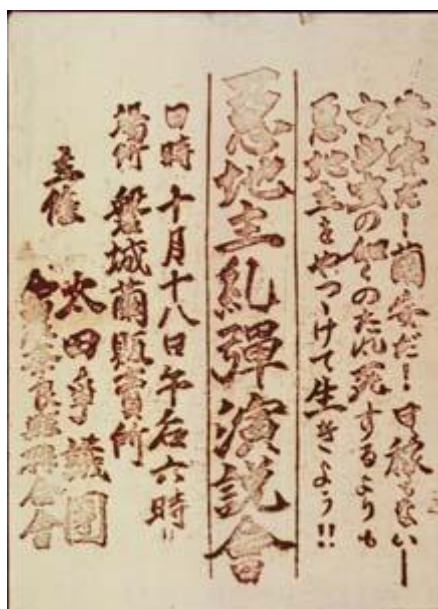 だ!繭安だ!日稼もない—
虫の如くのたれ死するよりも
悪地主をやつゝけて生きよう!!
悪地主糺彈演説會
日時 十月十八日午后六時
場所 磐城繭販賣所
主催 太田爭議團
全農奈良縣聯合會